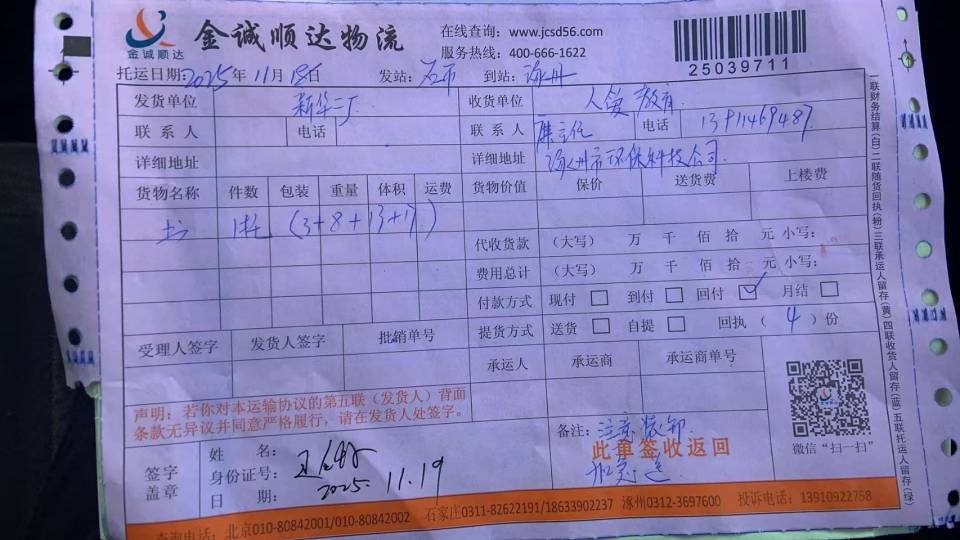 金诚顺达
金诚顺达物流
在线查询: www.jcsd56.com
服务热线: 400-666-1622
25039711
托运日期: 2025年11月18日 发站: 石市 到站: 涿州
发货单位 新华二厂 收货单位 人爱教育
联系人 电话 联系人 主任 电话 13911469487
详细地址 详细地址 涿州市环保科技公司
货物名称 件数 包装 重量 体积 运费 货物价值 保价 送货费 上楼费
书 1托 (3+8+13+17)
代收货款 (大写) 万 仟 佰 拾 元 小写:
费用总计 (大写) 万 仟 佰 拾 元 小写:
付款方式 现付 □ 到付 □ 回付 ☑ 月结 □
提货方式 送货 □ 自提 □ 回执 ( 4 ) 份
受理人签字 发货人签字 批销单号
承运人 承运商 承运商单号
声明: 若你对本运输协议的第五联(发货人)背面
条款无异议并同意严格履行, 请在发货人处签字。
备注: 注意装卸
此单签收返回
加急
微信“扫一扫”
签字
盖章
姓 名:
身份证号:
日 期: 2025. 11.19
查询电话: 北京010-80842001/010-80842002 石家庄0311-82622191/18633902237 涿州0312-3697600 投诉电话: 13910922758
一联财务结算(白)二联随货回执(粉)三联承运人留存(黄)四联收货人留存(蓝)五联托运人留存(绿)